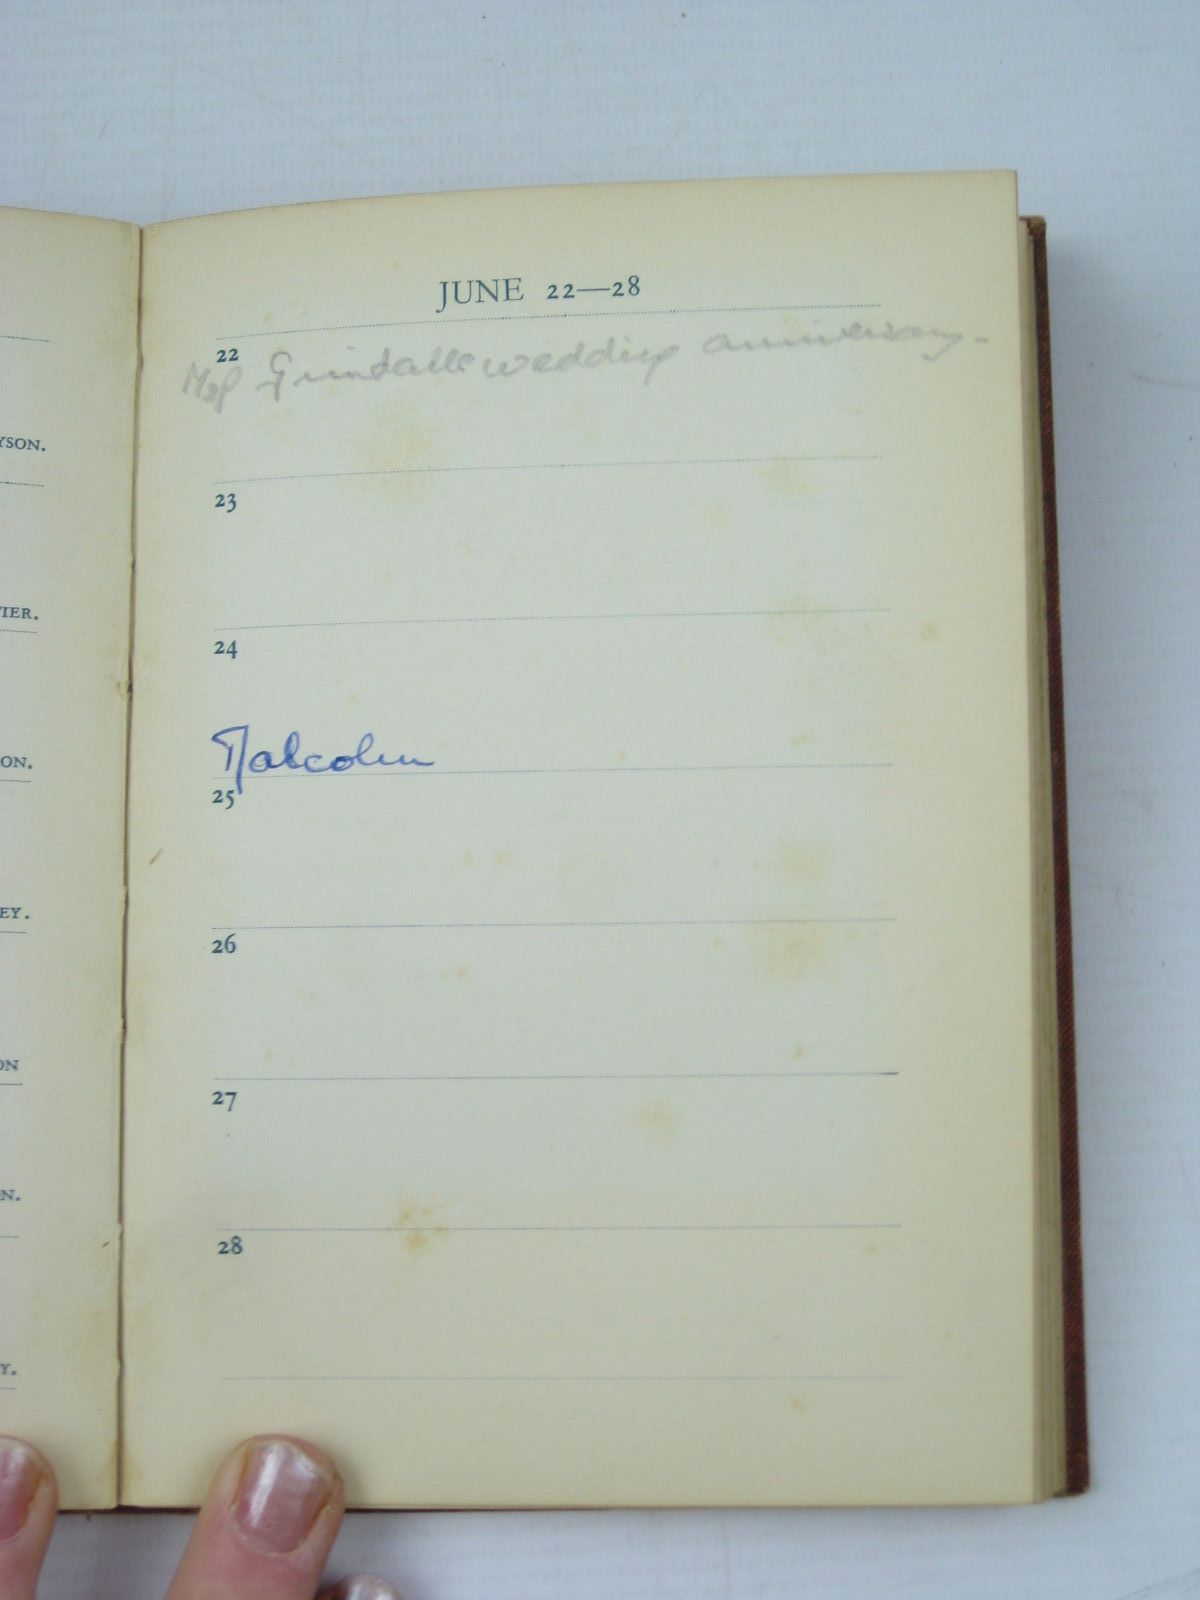 JUNE 22—28
22
wedding anniversary.
23
24
Malcolm
25
26
27
28
YSON.
TIER.
ON.
EY.
ON
N.
Y.